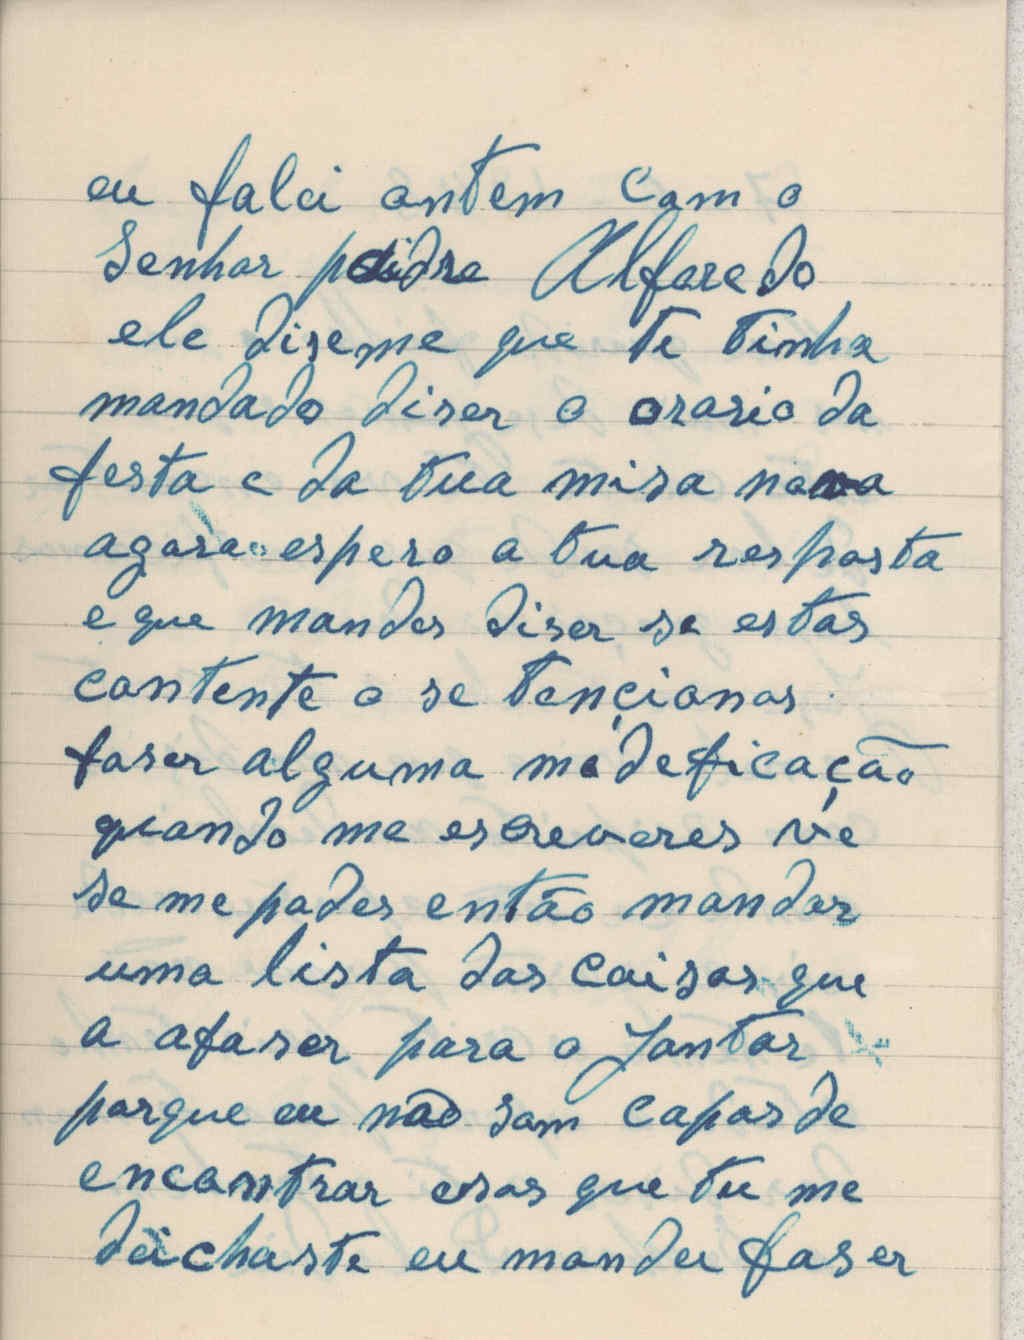 eu falei ontem com o
Senhor padre Alfaredo
ele diseme que te tinha
mandado diser o orario da
festa e da tua misa nova
agora espero a tua resposta
e que mandes diser se estas
contente o se tençionas
faser alguma modeficação
quando me escreveres vê
se me podes então mandar
uma lista das coisas que
a afaser para o Jantar
porque eu não som capas de
encontrar esas que tu me
deichaste eu mandei faser